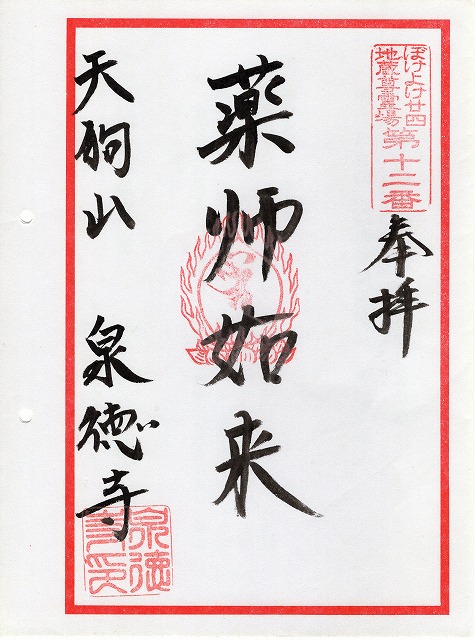 ぼけよけ廿四
地蔵尊霊場
第十二番
奉拝
薬师如来
天狗山 泉徳寺
泉徳
寺印